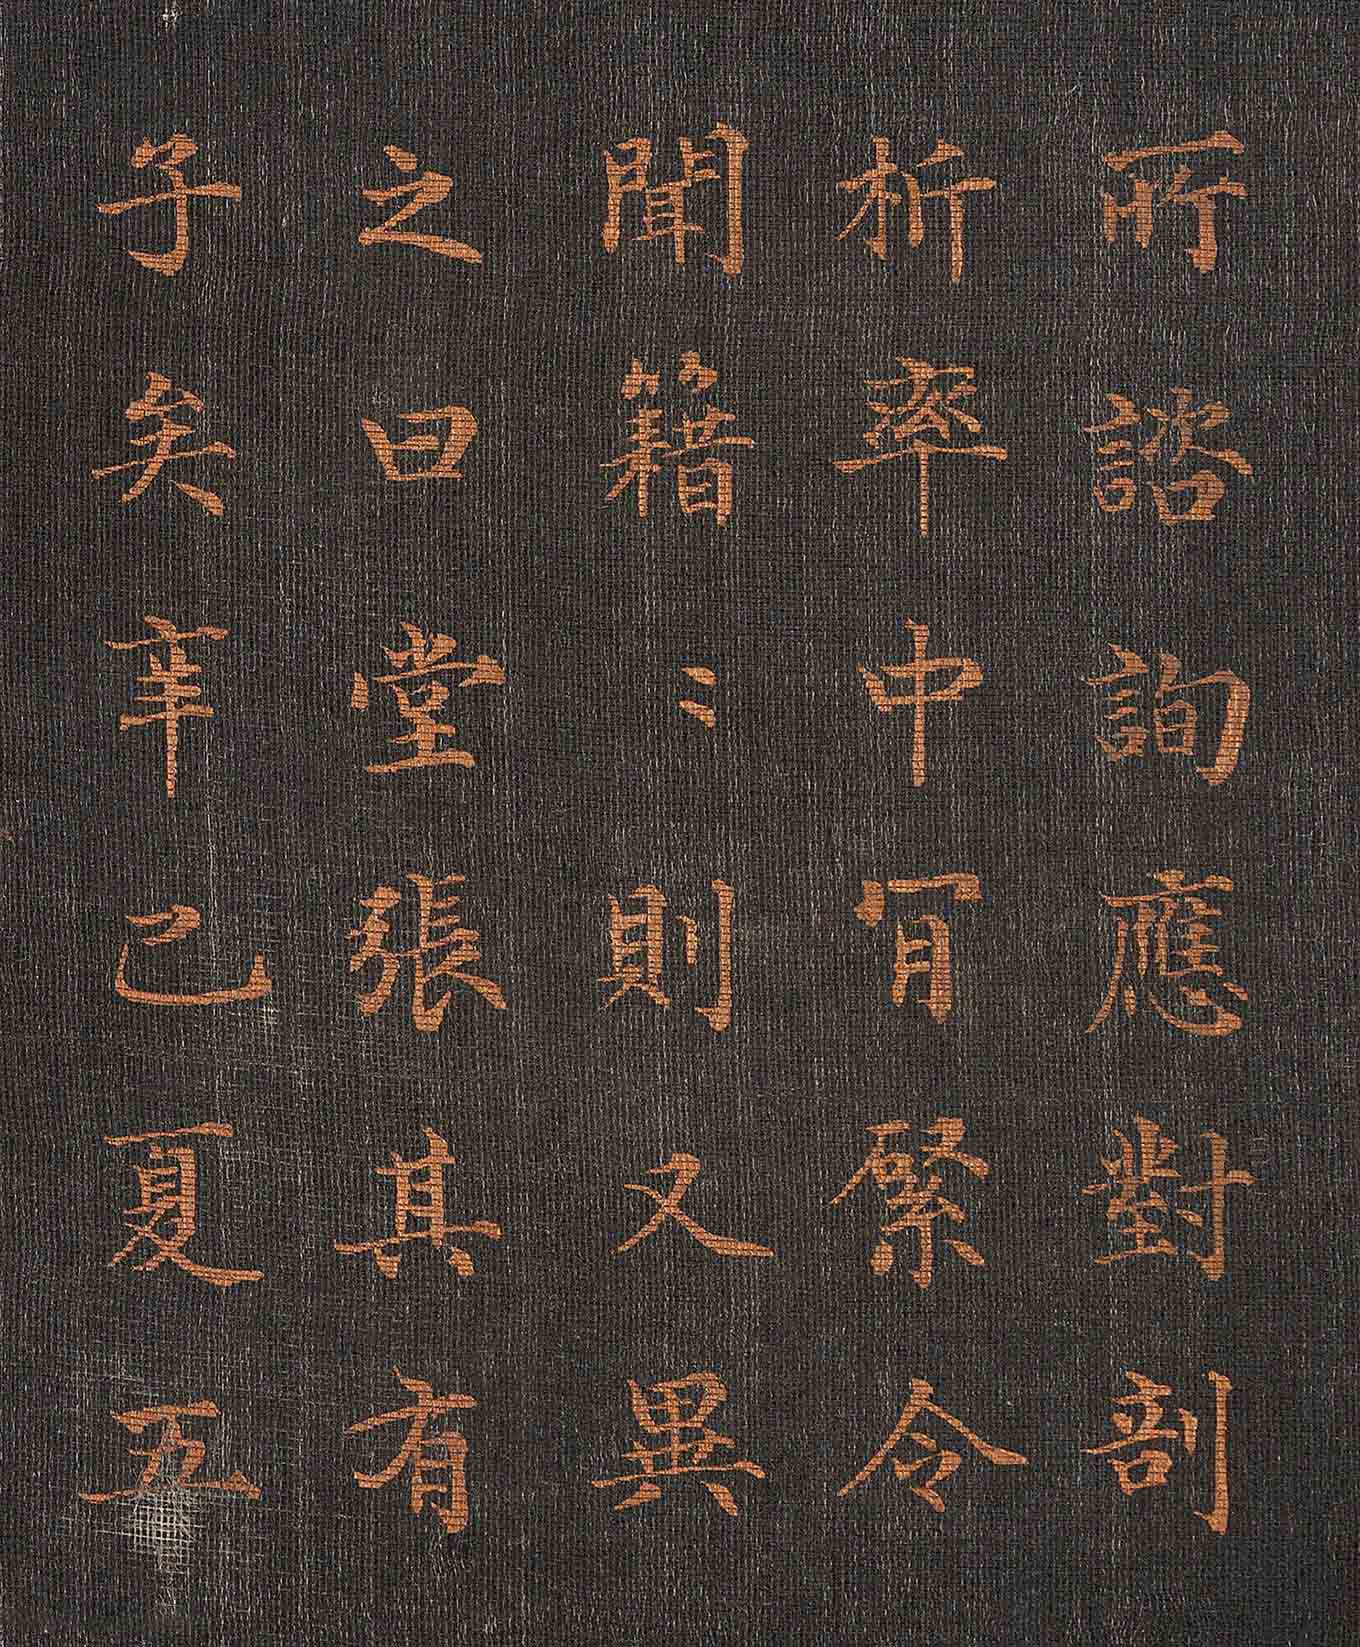 所諮詢應對剖
析率中肎綮令
聞籍〻則又異
之曰堂張其有
子矣辛己夏五